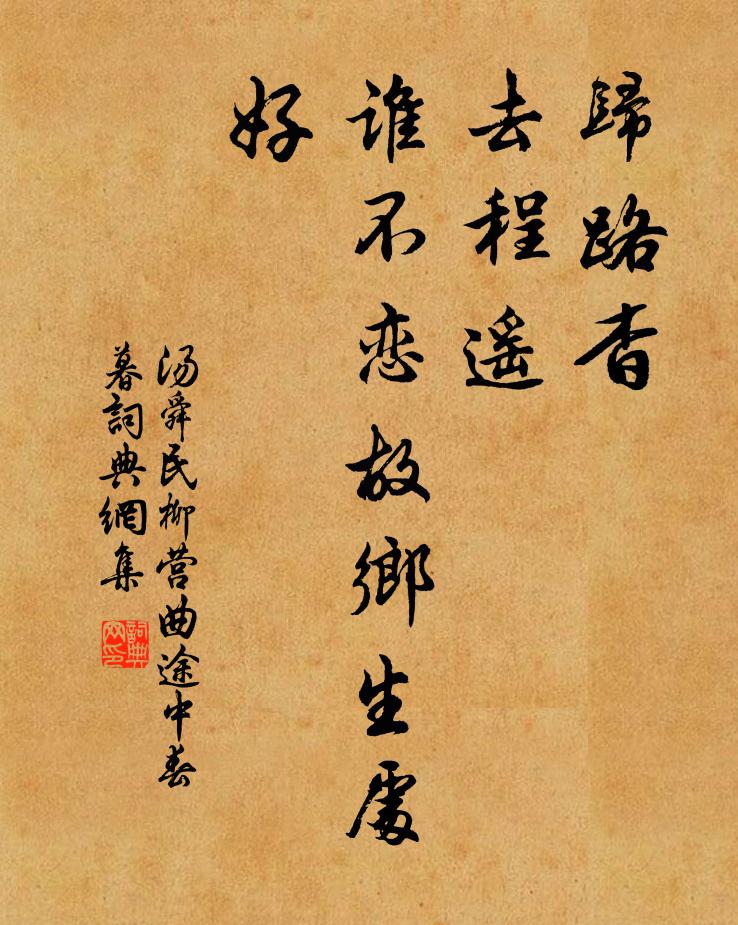 歸路杳
去程遥
誰不恋故鄉生處
好
湯舜民柳营曲途中春
暮詞典網集
詞典
网印